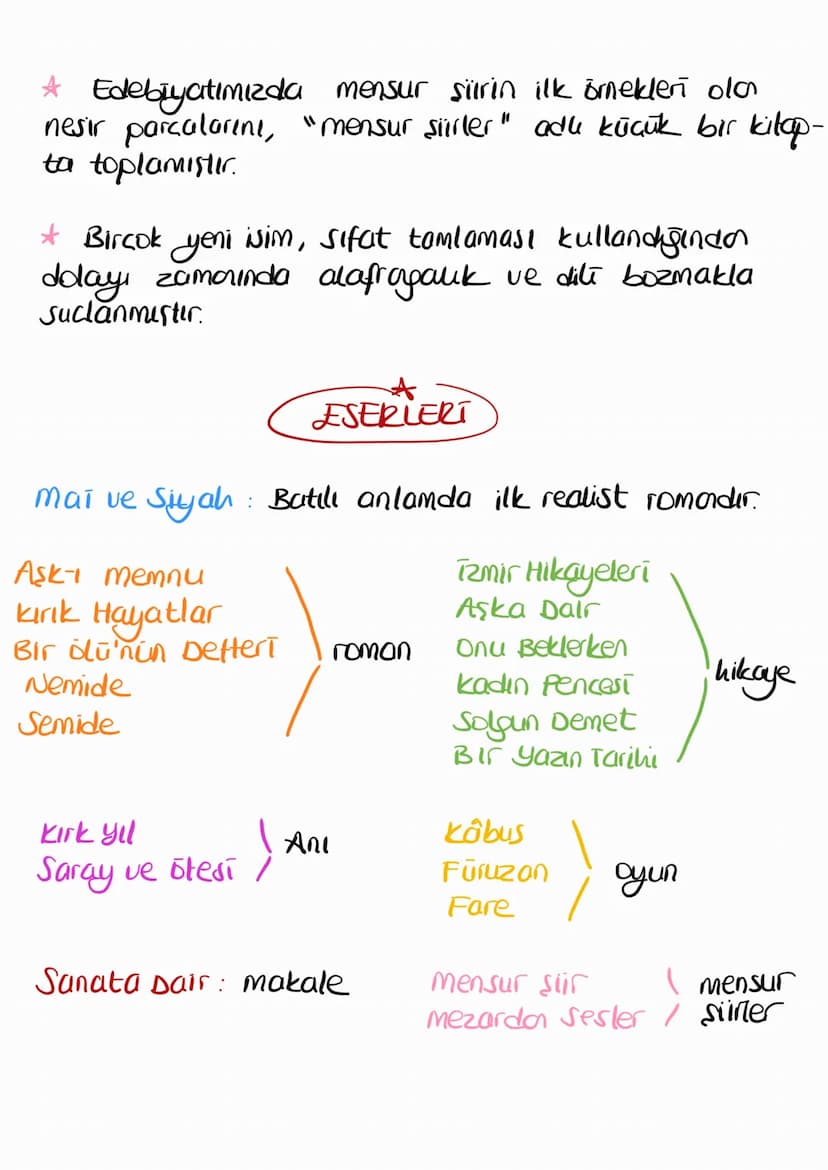 ★ Edebiyatımızda mensur şiirin ilk örnekleri olan
nesir parçalarını, "mensur şiirler" adlı küçük bir kitap-
ta toplamıştır.
★ Birçok yeni isim, sıfat tamlaması kullandığından
dolayı zamanında alafrangalık ve dili bozmakla
suçlanmıştır.
★
ESERLERİ
Mai ve Siyah : Batılı anlamda ilk realist romandır.
Aşk-ı memnu
Kırık Hayatlar
Bir ölü'nün Defteri
Nemide
Semide
roman
İzmir Hikayeleri
Aşka Dair
Onu Beklerken
Kadın Pençesi
Solgun Demet
Bir Yazın Tarihi
hikaye
Kırk Yıl
Saray ve ötesi
Anı
Kâbus
Füruzan
Fare
oyun
Sanata Dair : makale
Mensur şiir
Mezardan Sesler
mensur
şiirler